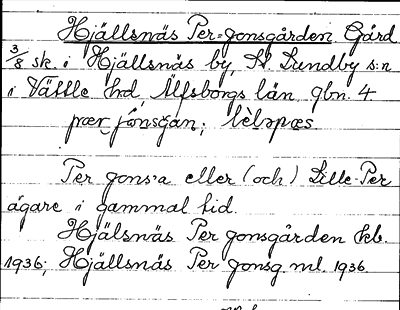 Hjällsnäs Per-Jonsgården Gård
3/8 sk. i Hjällsnäs by, St Lundby s:n
i Vättle hd, Älfsborgs län gbn. 4
pær jónsgan; lèləpæs
Per Jons:a eller (och) Lille-Per
ägare i gammal tid.
Hjälsnäs Per Jonsgården kb.
1936; Hjällsnäs Per Jonsg. ml. 1936.